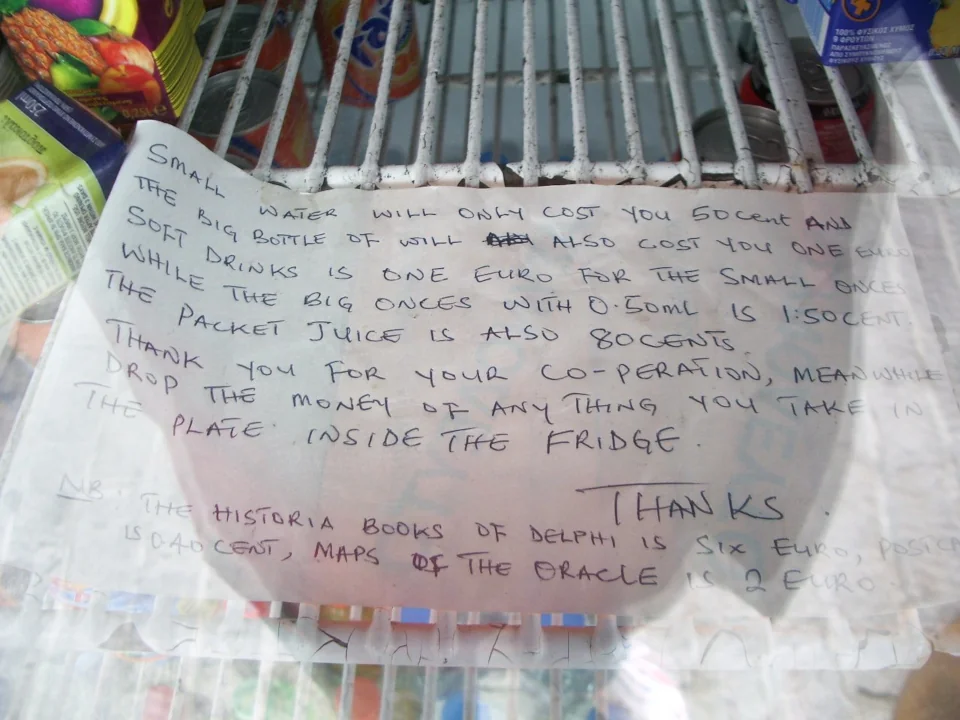 100% ΦΥΣΙΚΟΣ ΧΥΜΟΣ
9 ΦΡΟΥΤΩΝ
ΠΑΡΑΣΚΕΥΑΣΜΕΝΟΣ
ΑΠΟ ΣΥΜΠΥΚΝΩΜΕΝΟΥΣ
ΦΥΣΙΚΟΥΣ ΧΥΜΟΥΣ
250ml
SMALL WATER WILL ONLY COST YOU 50 CENT AND
THE BIG BOTTLE OF WILL ALSO COST YOU ONE EURO
SOFT DRINKS IS ONE EURO FOR THE SMALL ONCES
WHILE THE BIG ONCES WITH 0.50ML IS 1:50 CENT.
THE PACKET JUICE IS ALSO 80 CENTS.
THANK YOU FOR YOUR CO-PERATION, MEANWHILE
DROP THE MONEY OF ANY THING YOU TAKE IN
THE PLATE INSIDE THE FRIDGE.
THANKS.
NB. THE HISTORIA BOOKS OF DELPHI IS SIX EURO,
IS 0.40 CENT, MAPS OF THE ORACLE IS 2 EURO